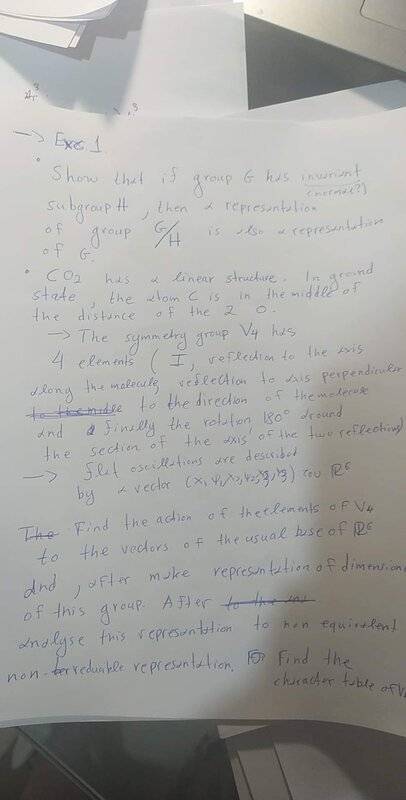 → Exe 1.
• Show that if group G has invariant
(normal?)
subgroup H, then a representation
of group G/H is also a representation
of G.
• CO2 has a linear structure. In ground
state, the atom C is in the middle of
the distance of the 2 O.
→ The symmetry group V4 has
4 elements (I, reflection to the axis
along the molecule, reflection to axis perpendicular
to the direction of the molecule
and finally the rotation 180° around
the section of the axis of the two reflections)
→ flat oscillations are described
by a vector
του R6
Find the action of the elements of V4
to the vectors of the usual base of R6
and, after make representation of dimension
of this group. After
analyse this representation to non equivalent
non-reduable representation. Find the
character table of V4